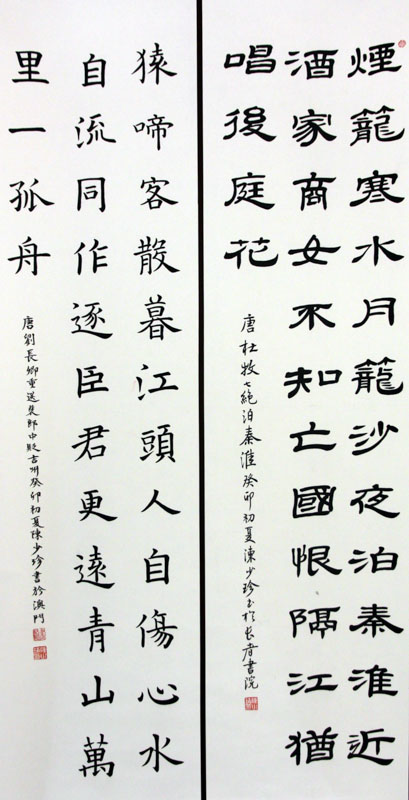 煙籠寒水月籠沙夜泊秦淮近
酒家商女不知亡國恨隔江猶
唱後庭花
唐杜牧七絕泊秦淮癸卯初夏陳少珍书於长者書院
猿啼客散暮江頭人自傷心水
自流同作逐臣君更遠青山萬
里一孤舟
唐劉長卿重送裴郎中貶吉州癸卯初夏陳少珍書於澳門